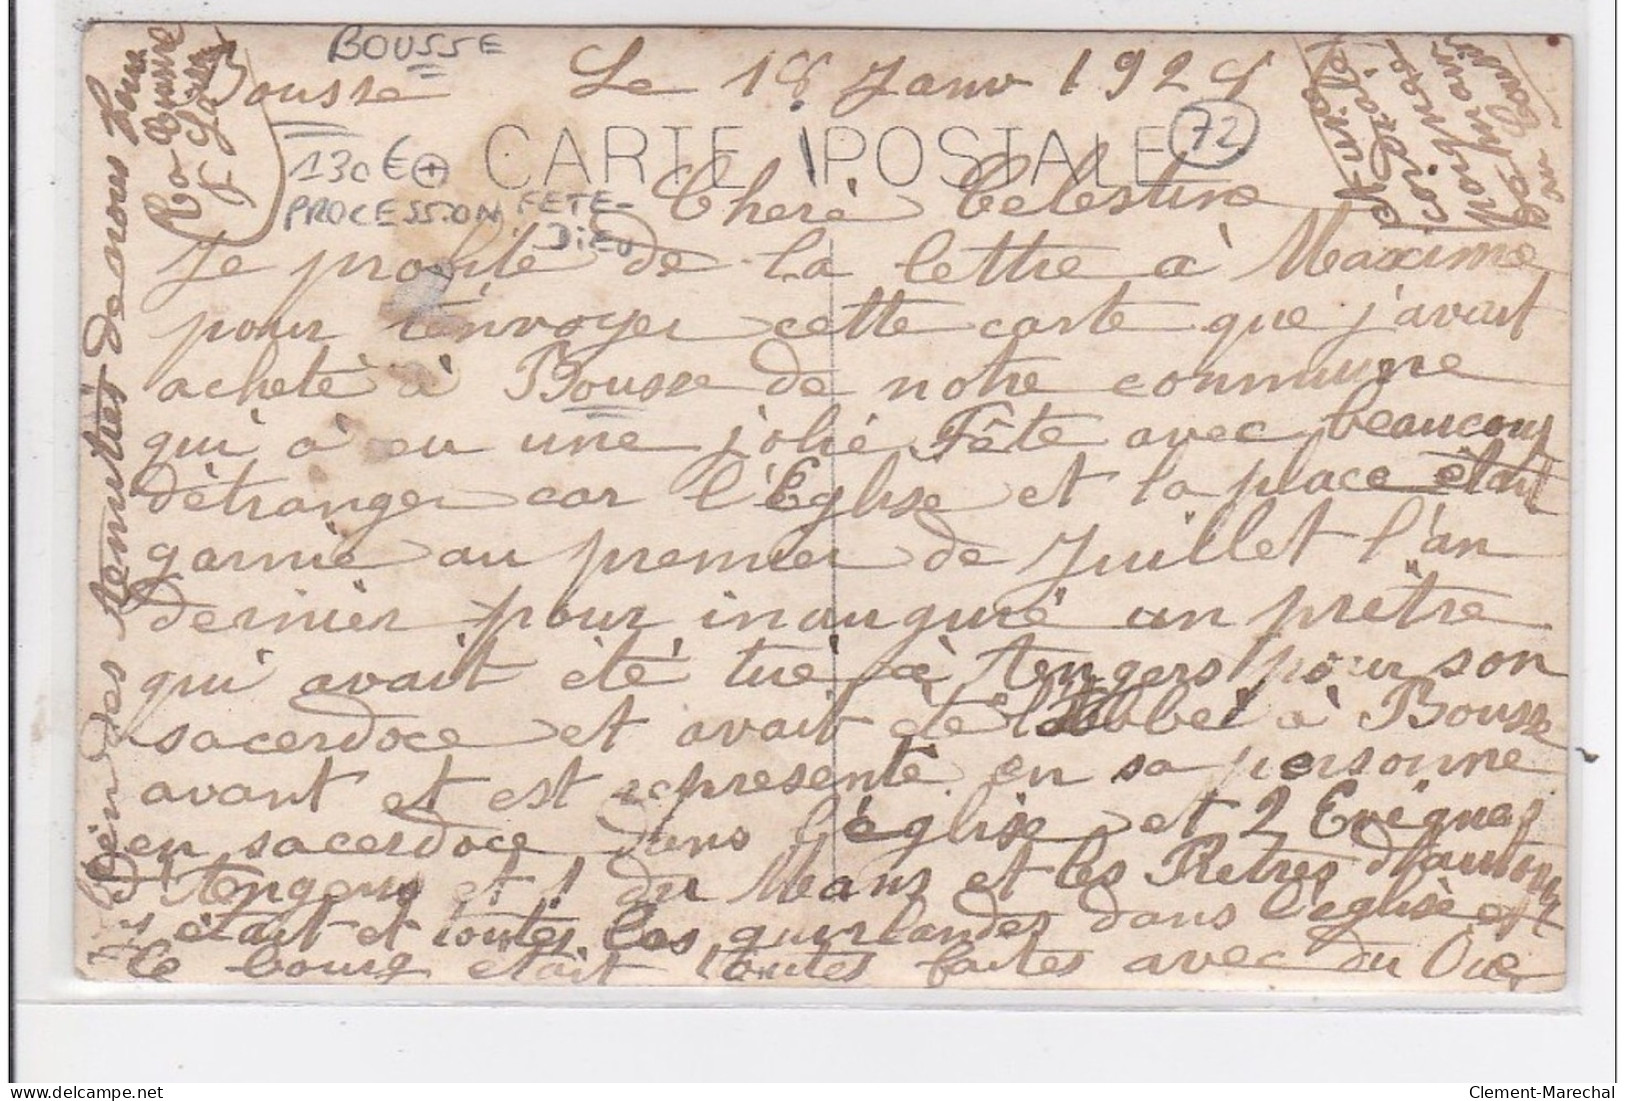 BOUSSE
Bousse Le 18 Janv 192
CARTE POSTALE
72
130€
PROCESSION FETE-
DIEU
Cheré Celestine
Je profite de la lettre à Maxime
pour t'envoyer cette carte que j'avait
acheté à Bousse de notre commune
qui à eu une jolie Fête avec beaucoup
détranger car l'Eglise et la place était
garnie au premier de Juillet l'an
dernier pour inauguré un prêtre
qui avait été tué à Angers pour son
sacerdoce et avait été l'Abbé à Bousse
avant et est représenté en sa personne
en sacerdoce dans l'église et 2 Evéques
d'Angers et 1 du Mans et les Prêtres d'
y était et toutes les guirlandes dans l'église et
le bourg était toutes faites avec du
bien des de nous tous
Clement-Marechal